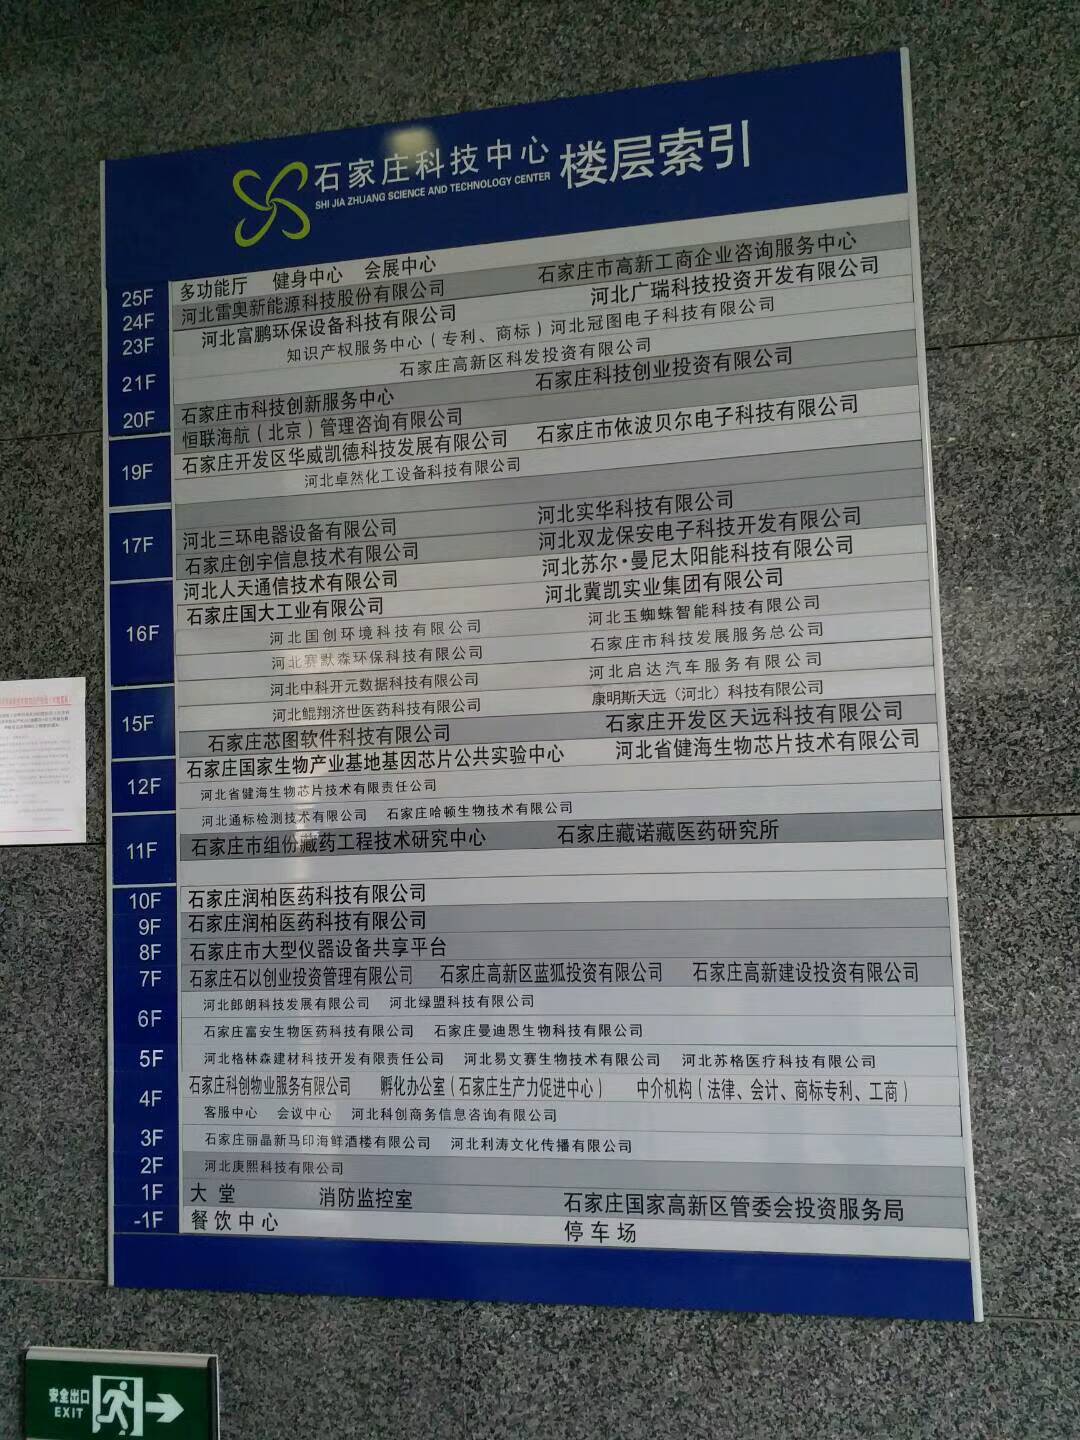 石家庄科技中心 楼层索引
SHI JIA ZHUANG SCIENCE AND TECHNOLOGY CENTER
25F 多功能厅 健身中心 会展中心
24F 河北雷奥新能源科技股份有限公司 石家庄市高新工商企业咨询服务中心
23F 河北富鹏环保设备科技有限公司 河北广瑞科技投资开发有限公司
知识产权服务中心（专利、商标）河北冠图电子科技有限公司
21F 石家庄高新区科发投资有限公司
20F 石家庄市科技创新服务中心 石家庄科技创业投资有限公司
恒联海航（北京）管理咨询有限公司
19F 石家庄开发区华威凯德科技发展有限公司 石家庄市依波贝尔电子科技有限公司
河北卓然化工设备科技有限公司
17F 河北三环电器设备有限公司 河北实华科技有限公司
石家庄创宇信息技术有限公司 河北双龙保安电子科技开发有限公司
16F 河北人天通信技术有限公司 河北苏尔·曼尼太阳能科技有限公司
石家庄国大工业有限公司 河北冀凯实业集团有限公司
河北国创环境科技有限公司 河北玉蜘蛛智能科技有限公司
河北赛默森环保科技有限公司 石家庄市科技发展服务总公司
15F 河北中科开元数据科技有限公司 河北启达汽车服务有限公司
河北鲲翔济世医药科技有限公司 康明斯天远（河北）科技有限公司
石家庄芯图软件科技有限公司 石家庄开发区天远科技有限公司
12F 石家庄国家生物产业基地基因芯片公共实验中心 河北省健海生物芯片技术有限公司
河北省健海生物芯片技术有限责任公司
河北通标检测技术有限公司 石家庄哈顿生物技术有限公司
11F 石家庄市组份藏药工程技术研究中心 石家庄藏诺藏医药研究所
10F 石家庄润柏医药科技有限公司
9F 石家庄润柏医药科技有限公司
8F 石家庄市大型仪器设备共享平台
7F 石家庄石以创业投资管理有限公司 石家庄高新区蓝狐投资有限公司 石家庄高新建设投资有限公司
6F 河北郎朗科技发展有限公司 河北绿盟科技有限公司
石家庄富安生物医药科技有限公司 石家庄曼迪恩生物科技有限公司
5F 河北格林森建材科技开发有限责任公司 河北易文赛生物技术有限公司 河北苏格医疗科技有限公司
4F 石家庄科创物业服务有限公司 孵化办公室（石家庄生产力促进中心） 中介机构（法律、会计、商标专利、工商）
客服中心 会议中心 河北科创商务信息咨询有限公司
3F 石家庄丽晶新马印海鲜酒楼有限公司 河北利涛文化传播有限公司
2F 河北庚熙科技有限公司
1F 大堂 消防监控室 石家庄国家高新区管委会投资服务局
-1F 餐饮中心 停车场
安全出口
EXIT